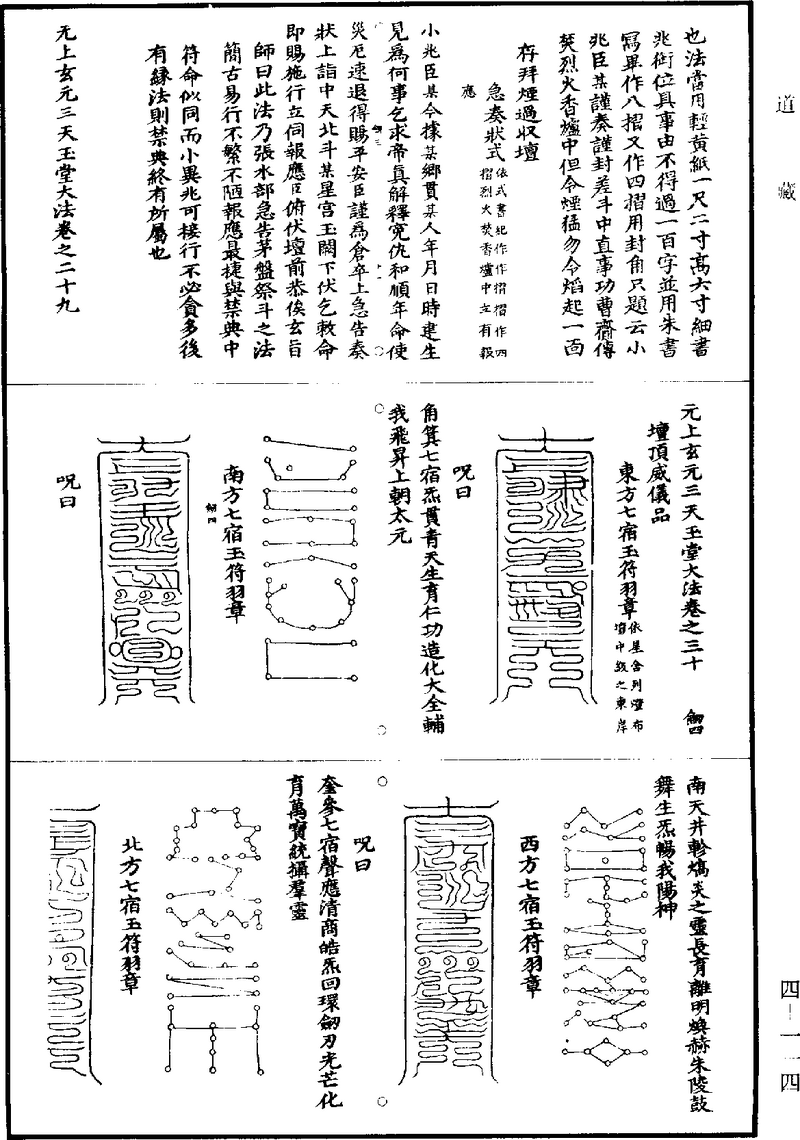 道藏
四—一一四
也法當用輕黃紙一尺二寸高六寸細書
兆銜位具事由不得過一百字並用朱書
寫畢作八摺又作四摺用封角只題云小
兆臣某謹奏謹封差斗中直事功曹齎傳
焚烈火香爐中但令煙猛勿令焰起一面
存拜煙過収壇
急奏狀式依式書祀作作摺摺作四
摺烈火焚香爐中立有報
應
小兆臣某今據某鄉貫某人年月日時建生
見為何事乞求帝真解釋冤仇和順年命使
災厄速退得賜平安臣謹為倉卒上急告奏
狀上詣中天北斗某星宮玉闕下伏乞敕命
即賜施行立伺報應臣俯伏壇前恭俟玄旨
師曰此法乃張水部急告茅盤祭斗之法
簡古易行不繁不陋報應最捷與禁典中
符命似同而小異兆可接行不必貪多後
有緣法則禁典終有所屬也
无上玄元三天玉堂大法卷之二十九
无上玄元三天玉堂大法卷之三十
壇頂威儀品
東方七宿玉符羽章依星舍列燈布
壇中級之東岸
呪曰
角箕七宿炁貫青天生育仁功造化大全輔
我飛昇上朝太元
南方七宿玉符羽章
呪曰
南天井軫熇炎之靈長育離明煥赫朱陵鼓
舞生炁暢我陽神
西方七宿玉符羽章
呪曰
奎參七宿聲應清商皓炁回環劒刃光芒化
育萬寶統攝羣靈
北方七宿玉符羽章